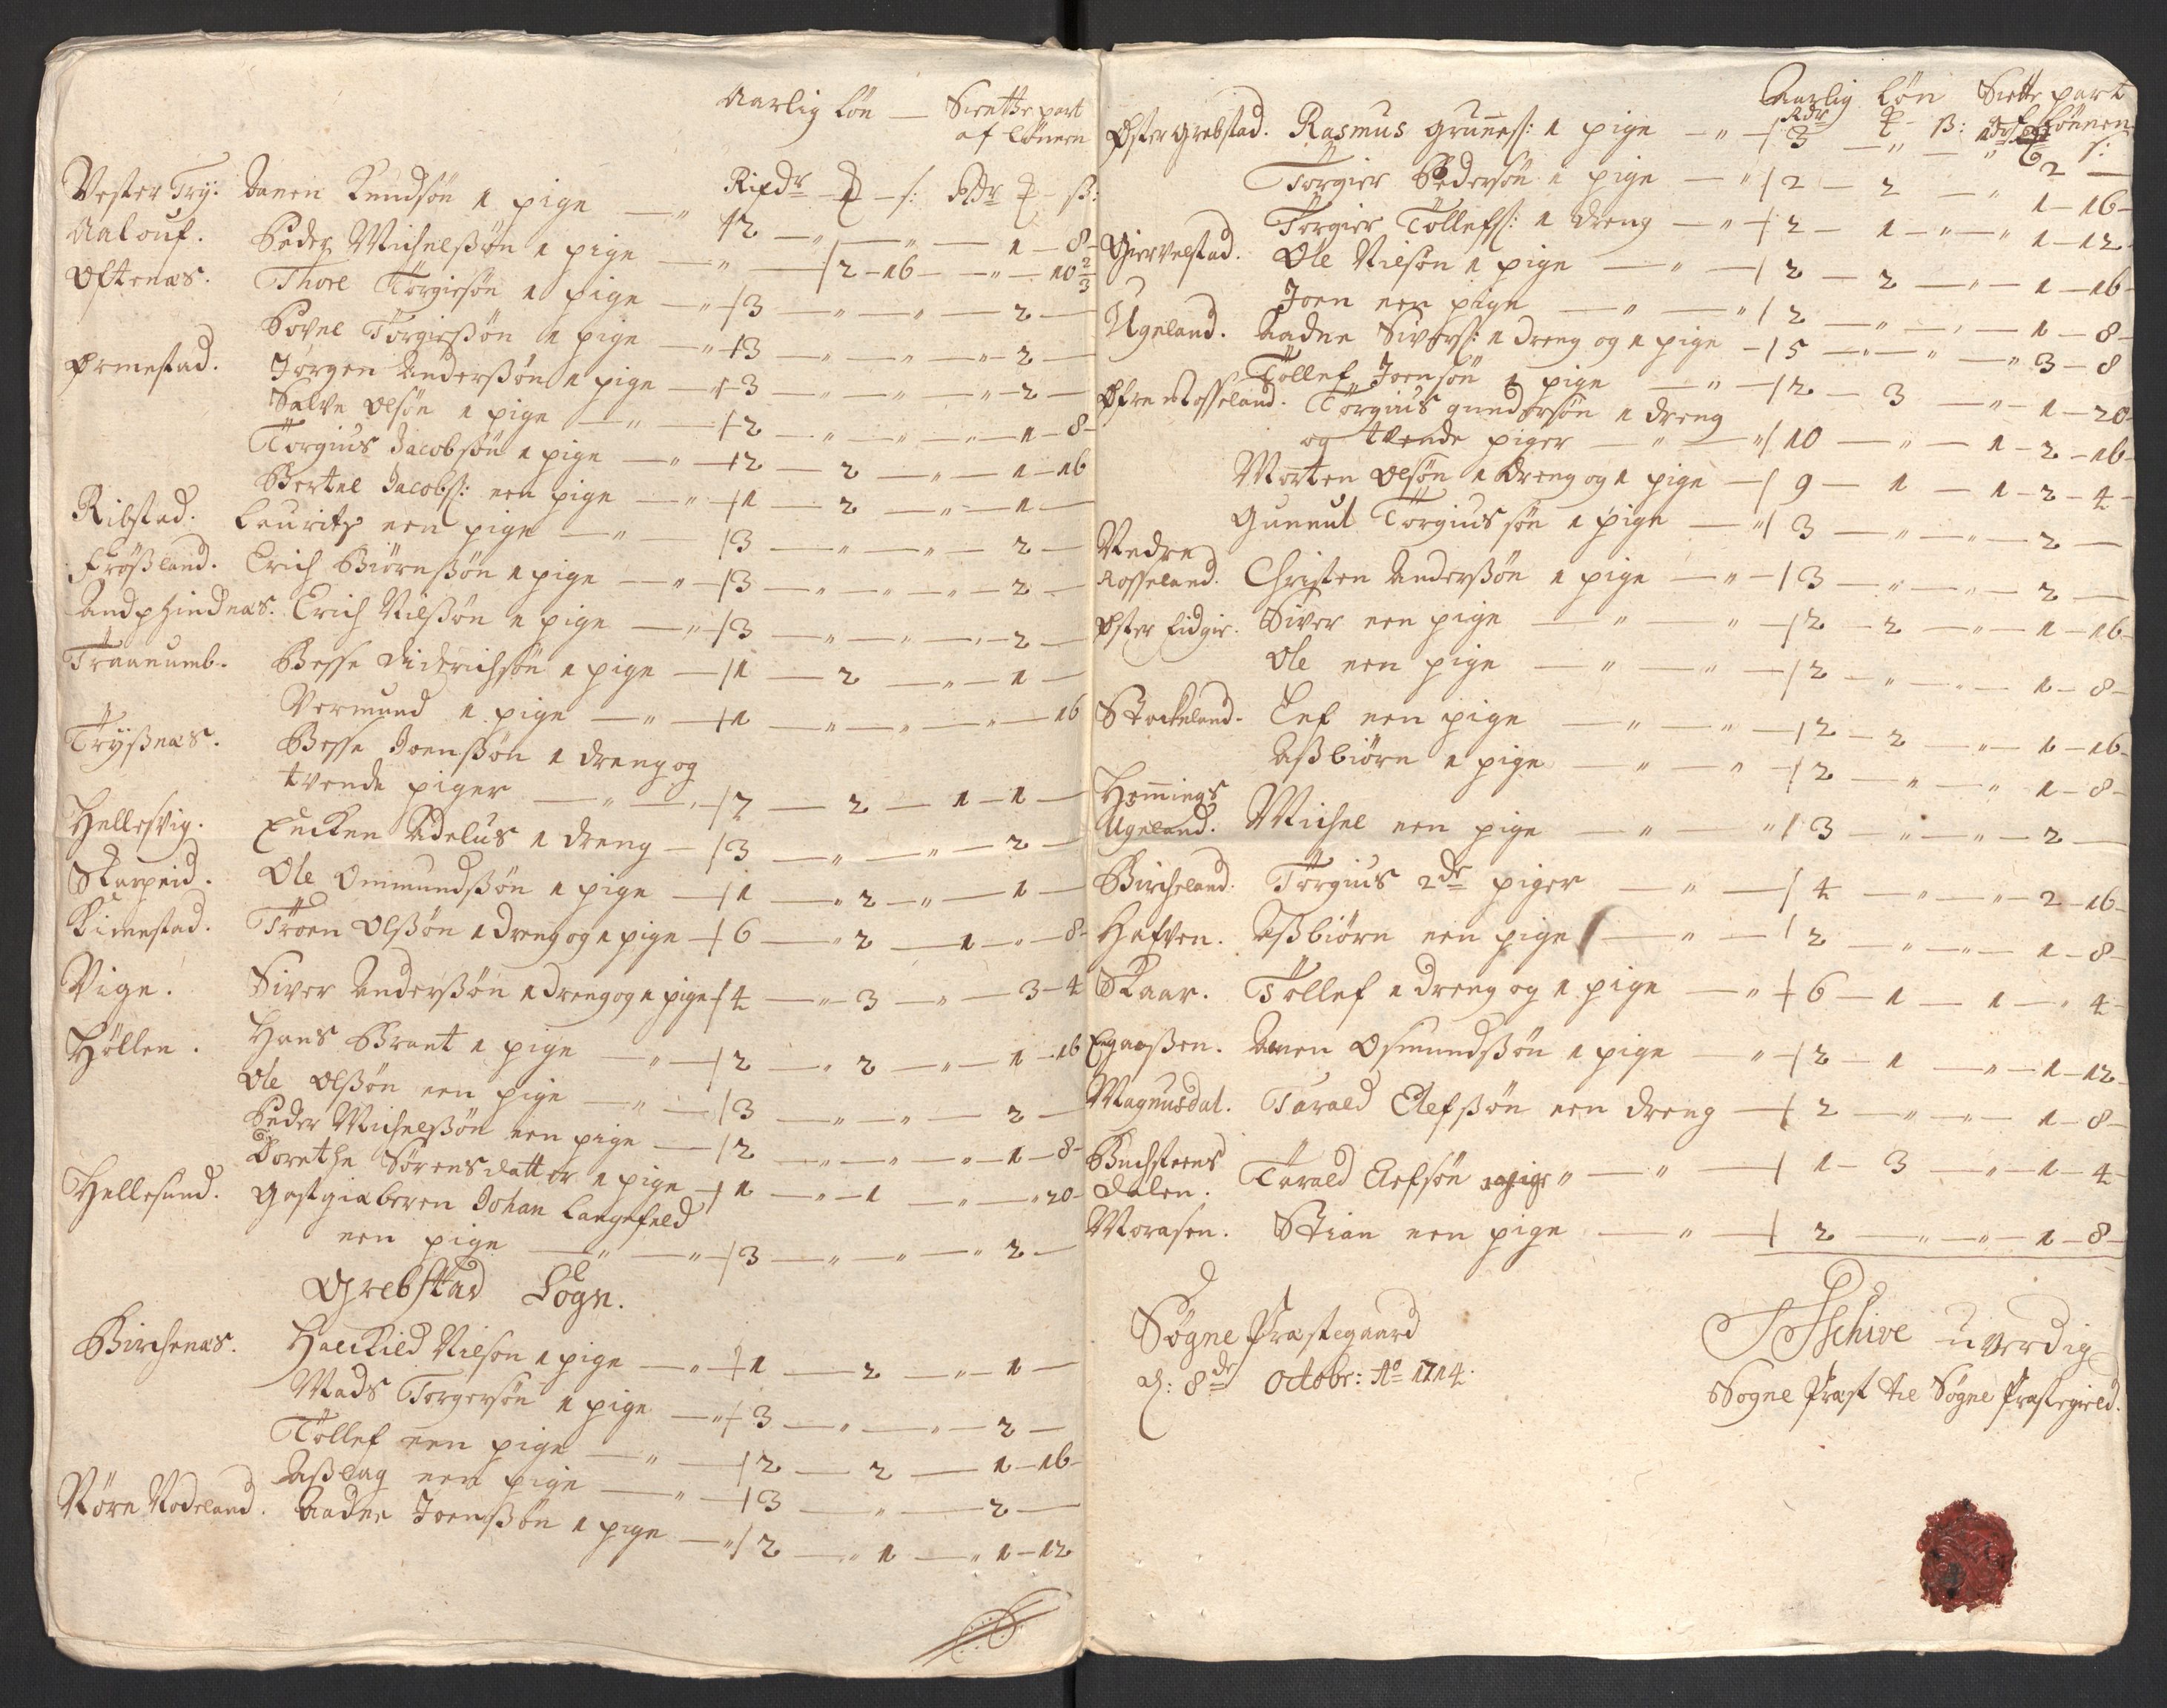 Aarlig Løn — Siette part
af Lönnen
Rixdr — ß: Rdr ß:
Vester Try. Danen Knudsön 1 pige — " 2 — " — " — 1 — 8
Aalouf. Peder Michelßön 1 pige — " 2 — 16 — " — 10 2/3
Oftenæs. Thore Törgiersön 1 pige — " 3 — " — " — 2 —
Povel Törgierßön 1 pige — " 3 — " — " — 2 —
Ormestad. Jörgen Anderßön 1 pige — " 3 — " — " — 2 —
Salve Olsön 1 pige — " 2 — " — " — 1 — 8
Törgius Jacobsön 1 pige — " 2 — 2 — " — 1 — 16
Bertel Jacobs: een pige — " 1 — 2 — " — 1 —
Ribstad. Lauritz een pige — " 3 — " — " — 2 —
Frößland. Erich Biörnßön 1 pige — " 3 — " — " — 2 —
Andp Hindnæs. Erich Nilßön 1 pige — " 3 — " — " — 2 —
Traanumb. Besse Diderichsön 1 pige — 1 — 2 — " — 1 —
Vermund 1 pige — " 1 — " — " — " — 16
Tryßnæs. Besse Joenßön 1 dreng og
tvende piger — " — 7 — 2 — 1 — 1 —
Hellesvig. Encken Adelus 1 dreng — 3 — " — " — 2 —
Skarpeid. Ole Ommundßön 1 pige — 1 — " 2 — " — 1 —
Kimestad. Troen Olßön 1 dreng og 1 pige — 6 — " 2 — 1 — " — 8
Vige. Siver Anderßön 1 dreng og 1 pige 4 — " 3 — " — 3 — 4
Höllen. Hans Brant 1 pige — " 2 — 2 — " — 1 — 16
Ole Olßön een pige — " 3 — " — " — 2 —
Peder Michelßön een pige — 2 — " — " — 1 — 8
Dorethe Sörensdatter 1 pige — 1 — " — 1 — " — " 20
Hellesund. Gastgiæberen Johan Langefeld
een pige — " — " 3 — " — " — " 2 —
Grebstad Sogn.
Birchenæs. Halckild Nilson 1 pige — " 1 — 2 — " — 1 —
Mads Torgersön 1 pige — " 3 — " — " — 2 —
Töllef een pige — " 2 — 2 — 1 — 16
Aßlag een pige — " 3 — " — 2 —
Nöre Rodeland. Aadne Joenßön 1 pige — " 2 — " 1 — " 1 — 12
Aarlig Lön Siette part
Rdr ß: af Lönnen
Øster Grebstad. Rasmus Grunnes: 1 pige — " 3 — " — " 2 —
Torgier Pedersön 1 pige — " 2 — 2 — " 1 — 16
Törgier Töllefs: 1 dreng — " 2 — 1 — " — " 1 — 12
Giervelstad. Ole Nilsön 1 pige — " — 2 — 2 — " — 1 — 16
Joen een pige — " — " 2 — " — " — 1 — 8
Ugeland. Aadne Sivers: 1 dreng og 1 pige — 5 — " — " — " 3 — 8
Töllef Joensön 1 pige — " — 2 — 3 — " — 1 — 20
Øfre Rosseland. Törgius Gundersön 1 dreng
og tvende piger — " — " 10 — " — 1 — 2 — 16
Morten Olsön 1 dreng og 1 pige — 9 — 1 — 1 — 2 — 4
Gunnul Törgiussön 1 pige — " 3 — " — " — 2 —
Nedre
Rosseland. Christen Anderßön 1 pige — " — 3 — " — " — 2 —
Øster Eidgir. Siver een pige — " — " — 2 — 2 — " — 1 — 16
Ole een pige — " — " — 2 — " — " — 1 — 8
Stockeland. Eef een pige — " — " — 2 — 2 — " — 1 — 16
Aßbiörn 1 pige — " — " — 2 — " — " 1 — 8
Hemmings
Ugeland. Michel een pige — " — " 3 — " — " — 2 —
Bircheland. Törgius 2de piger — " — 4 — " — " — 2 — 16
Hafven. Aßbiörn een pige — " — 2 — " — " — 1 — 8
Skaar. Töllef 1 dreng og 1 pige — " 6 — 1 — 1 — " 4
Engaaßen. Anen Osmundßön 1 pige — " 2 — 1 — " — 1 — 12
Magnusdal. Tarald Elefßön een dreng — 2 — " — " — 1 — 8
Buchsteens
dalen. Tarald Elefsön 1 pige " — " — 1 — 3 — " — 1 — 4
Morasen. Stian een pige — " — 2 — " — " — 1 — 8
Søgne Præstegaard
d: 8de Octobr: Ao 1714.
Schive uverdig
Sogne Præst til Søgne Præstegield.